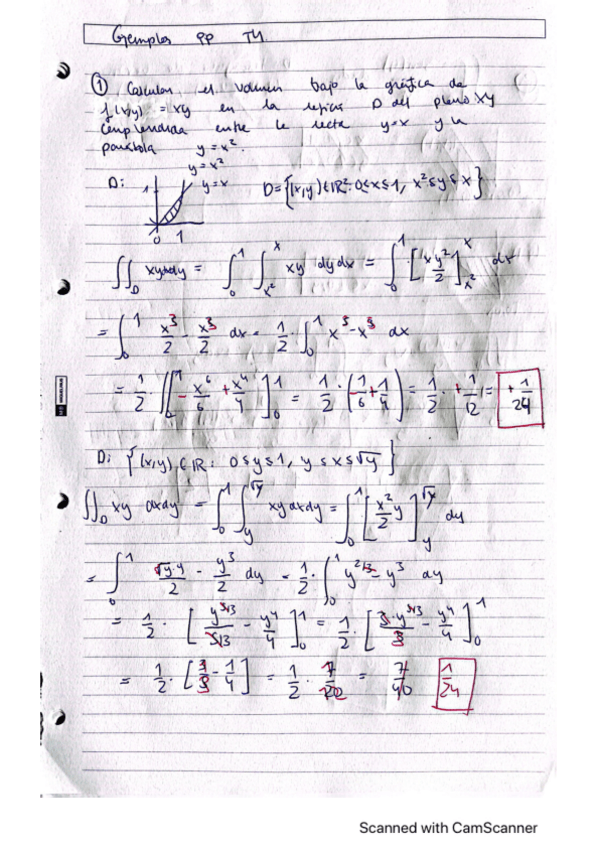 Ejemplos PP T4
① Calcular el volumen bajo la gráfica de
f(x,y) = xy en la región D del plano XY
comprendida entre la recta y=x y la
parábola y = x².
y = x²
D: 1 y = x D = {(x,y) ∈ ℝ²: 0≤x≤1, x² ≤ y ≤ x}
0 1
∬_D xy dxdy = ∫_0^1 ∫_{x²}^x xy dy dx = ∫_0^1 [xy²/2]_{x²}^x dx
= ∫_0^1 x³/2 - x⁵/2 dx = 1/2 · ∫_0^1 x³ - x⁵ dx
= 1/2 · [- x⁶/6 + x⁴/4]_0^1 = 1/2 · (-1/6 + 1/4) = 1/2 · + 1/12 = + 1/24
D: {(x,y) ∈ ℝ: 0≤y≤1, y≤x≤√y}
∬_D xy dxdy = ∫_0^1 ∫_y^{√y} xy dxdy = ∫_0^1 [x²/2 y]_y^{√y} dy
= ∫_0^1 y·y/2 - y³/2 dy = 1/2 · ∫_0^1 y² - y³ dy
= 1/2 · [y³/3 - y⁴/4]_0^1 = 1/2 · [y³/3 - y⁴/4]_0^1
= 1/2 · [1/3 - 1/4] = 1/2 · = 7/40 1/24
Scanned with CamScanner